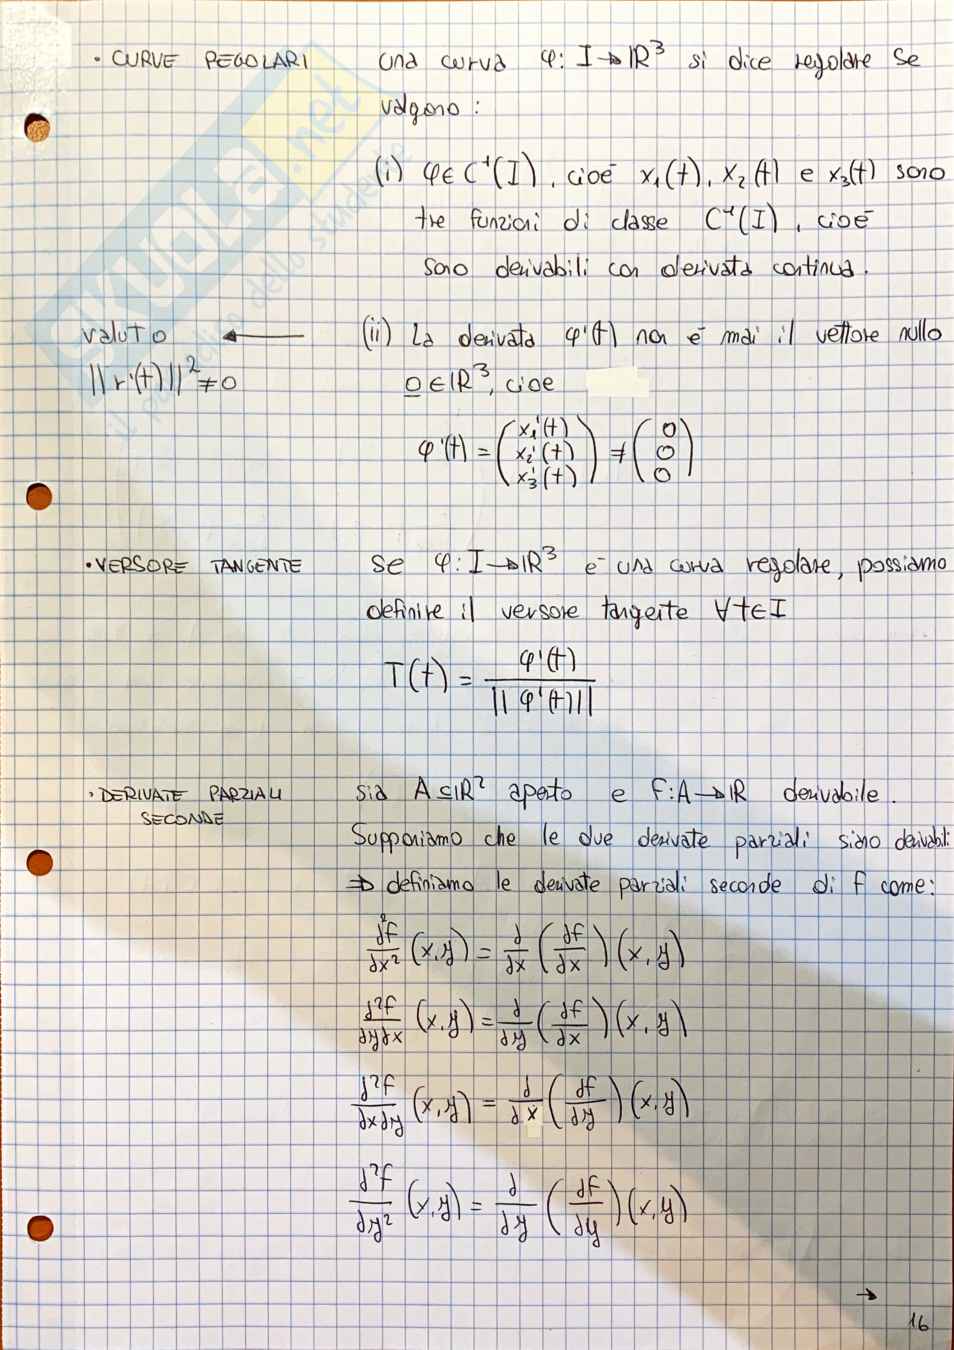 • CURVE REGOLARI
Una curva φ: I → ℝ³ si dice regolare se
valgono :
(i) φ ∈ C¹(I), cioè x₁(t), x₂(t) e x₃(t) sono
tre funzioni di classe C¹(I), cioè
sono derivabili con derivata continua.
valuto ←
||r'(t)||² ≠ 0
(ii) La derivata φ'(t) non è mai il vettore nullo
0 ∈ ℝ³, cioe
φ'(t) = (x₁'(t) x₂'(t) x₃'(t)) ≠ (0 0 0)
• VERSORE TANGENTE
Se φ: I → ℝ³ è una curva regolare, possiamo
definire il versore tangente ∀t∈I
T(t) = φ'(t) / ||φ'(t)||
• DERIVATE PARZIALI
SECONDE
sia A ⊆ ℝ² aperto e f: A → ℝ derivabile.
Supponiamo che le due derivate parziali siano derivabili
⇒ definiamo le derivate parziali seconde di f come:
∂²f/∂x² (x,y) = ∂/∂x (∂f/∂x) (x,y)
∂²f/∂y∂x (x,y) = ∂/∂y (∂f/∂x) (x,y)
∂²f/∂x∂y (x,y) = ∂/∂x (∂f/∂y) (x,y)
∂²f/∂y² (x,y) = ∂/∂y (∂f/∂y) (x,y)
→
16
SKUOLA.net
il paradiso dello studente